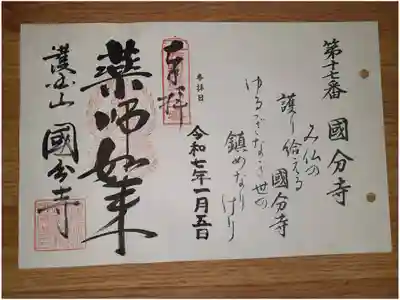 第十七番 國分寺
み仏の
護り給える 國分寺
ゆるぎなき世の
鎮めなりけり
参拝日
令和七年一月五日
奉拝
薬师如来
護国山 國分寺